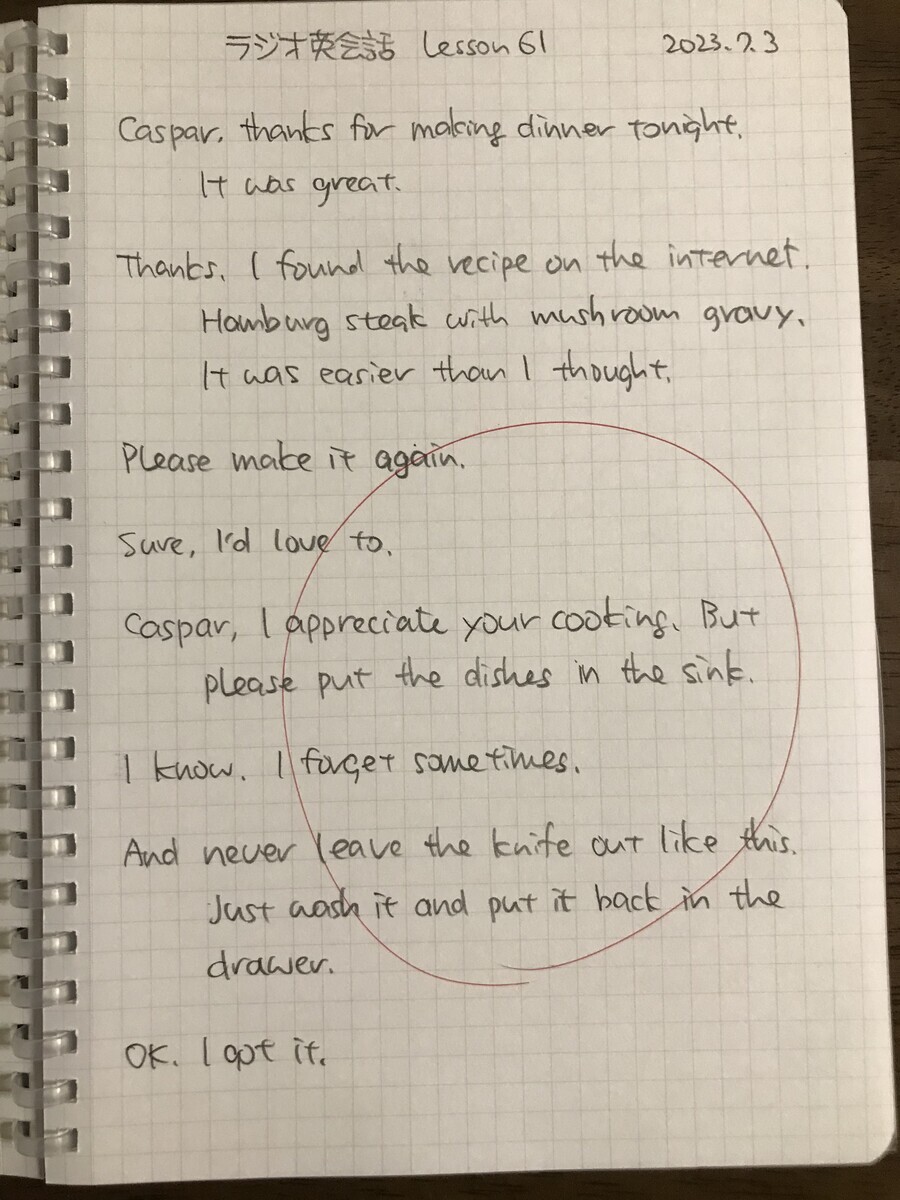 ラジオ英会話 Lesson 61 2023.7.3
Caspar, thanks for making dinner tonight.
It was great.
Thanks. I found the recipe on the internet.
Hamburg steak with mushroom gravy.
It was easier than I thought.
Please make it again.
Sure, I'd love to.
Caspar, I appreciate your cooking. But
please put the dishes in the sink.
I know. I forget sometimes.
And never leave the knife out like this.
Just wash it and put it back in the
drawer.
OK. I got it.